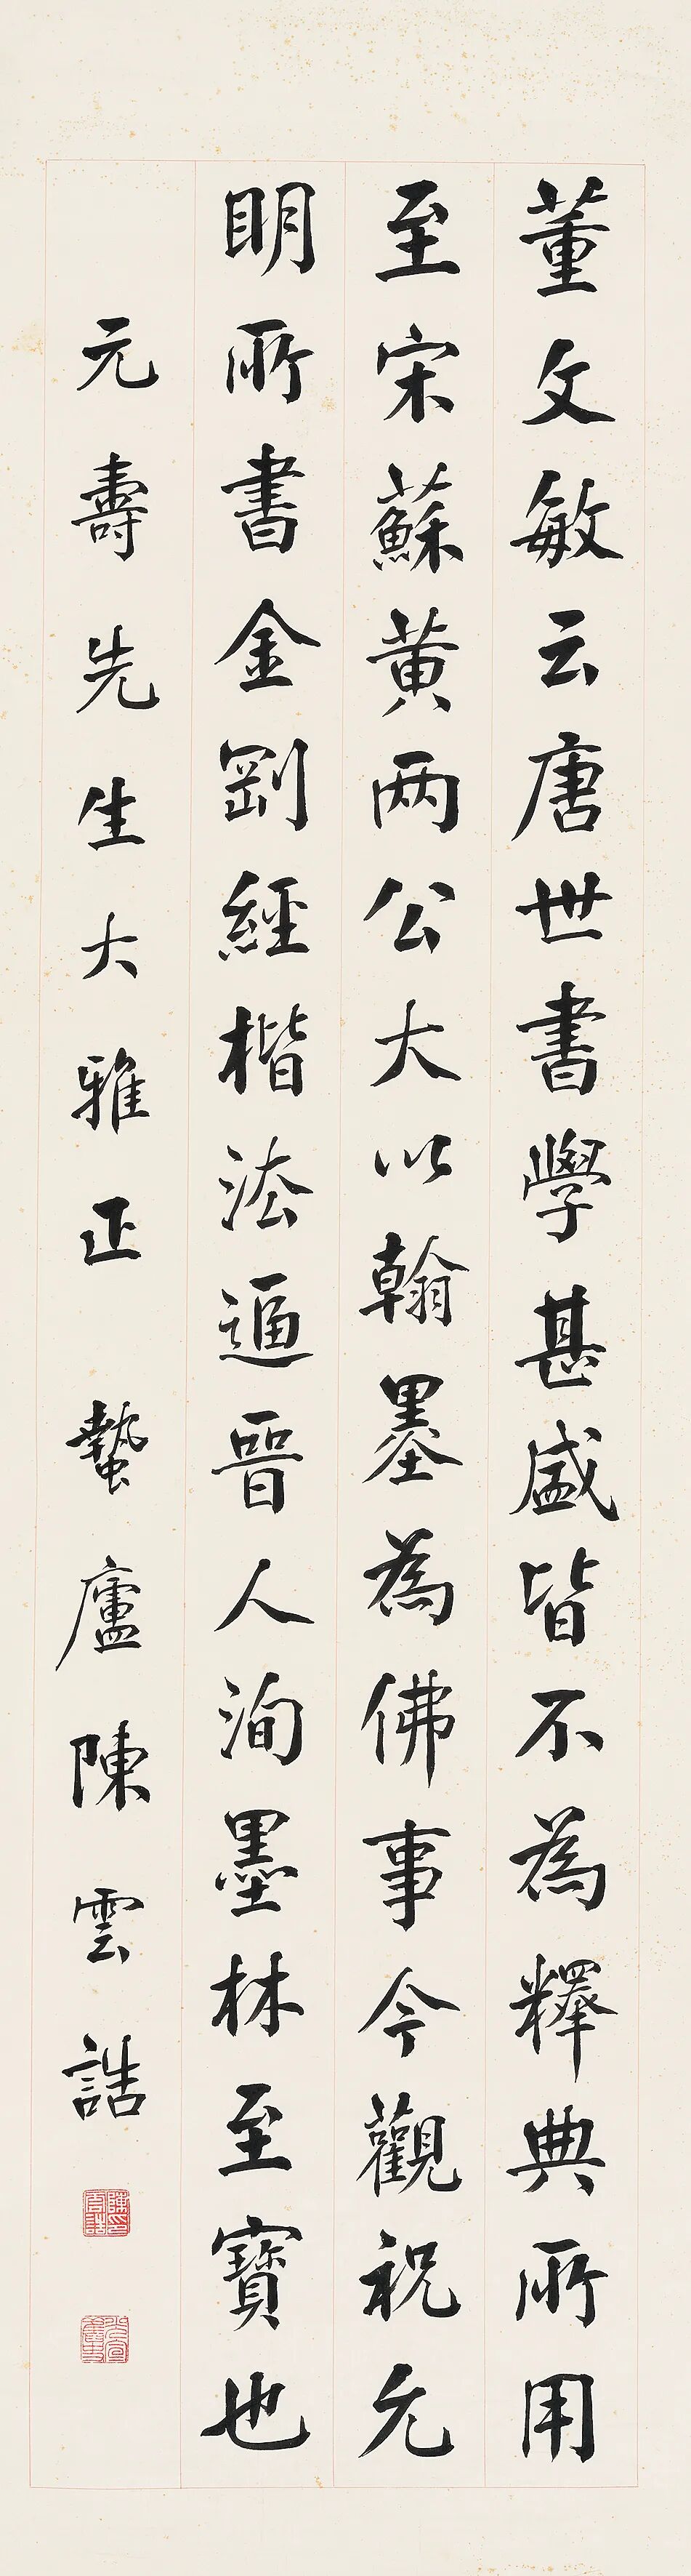 董文敏云唐世書學甚盛皆不為釋典所用
至宋蘇黄两公大以翰墨為佛事今觀祝允
明所書金剛經楷法逼晉人洵墨林至寶也
元壽先生大雅正 蟄廬陳雲誥